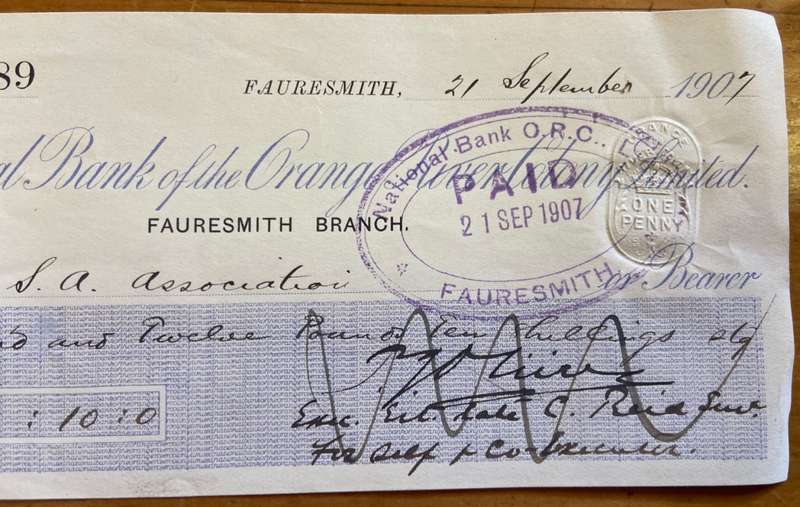 89
FAURESMITH, 21 September 1907
al Bank of the Orange River Colony Limited.
National Bank O.R.C., Ltd.
PAID
21 SEP 1907
FAURESMITH
ONE
PENNY
FAURESMITH BRANCH.
S. A. Association or Bearer
and Twelve Pounds Ten shillings stg
: 10 : 0
Exec. Est. late C. Reid Senr.
For self & Co-Executor.